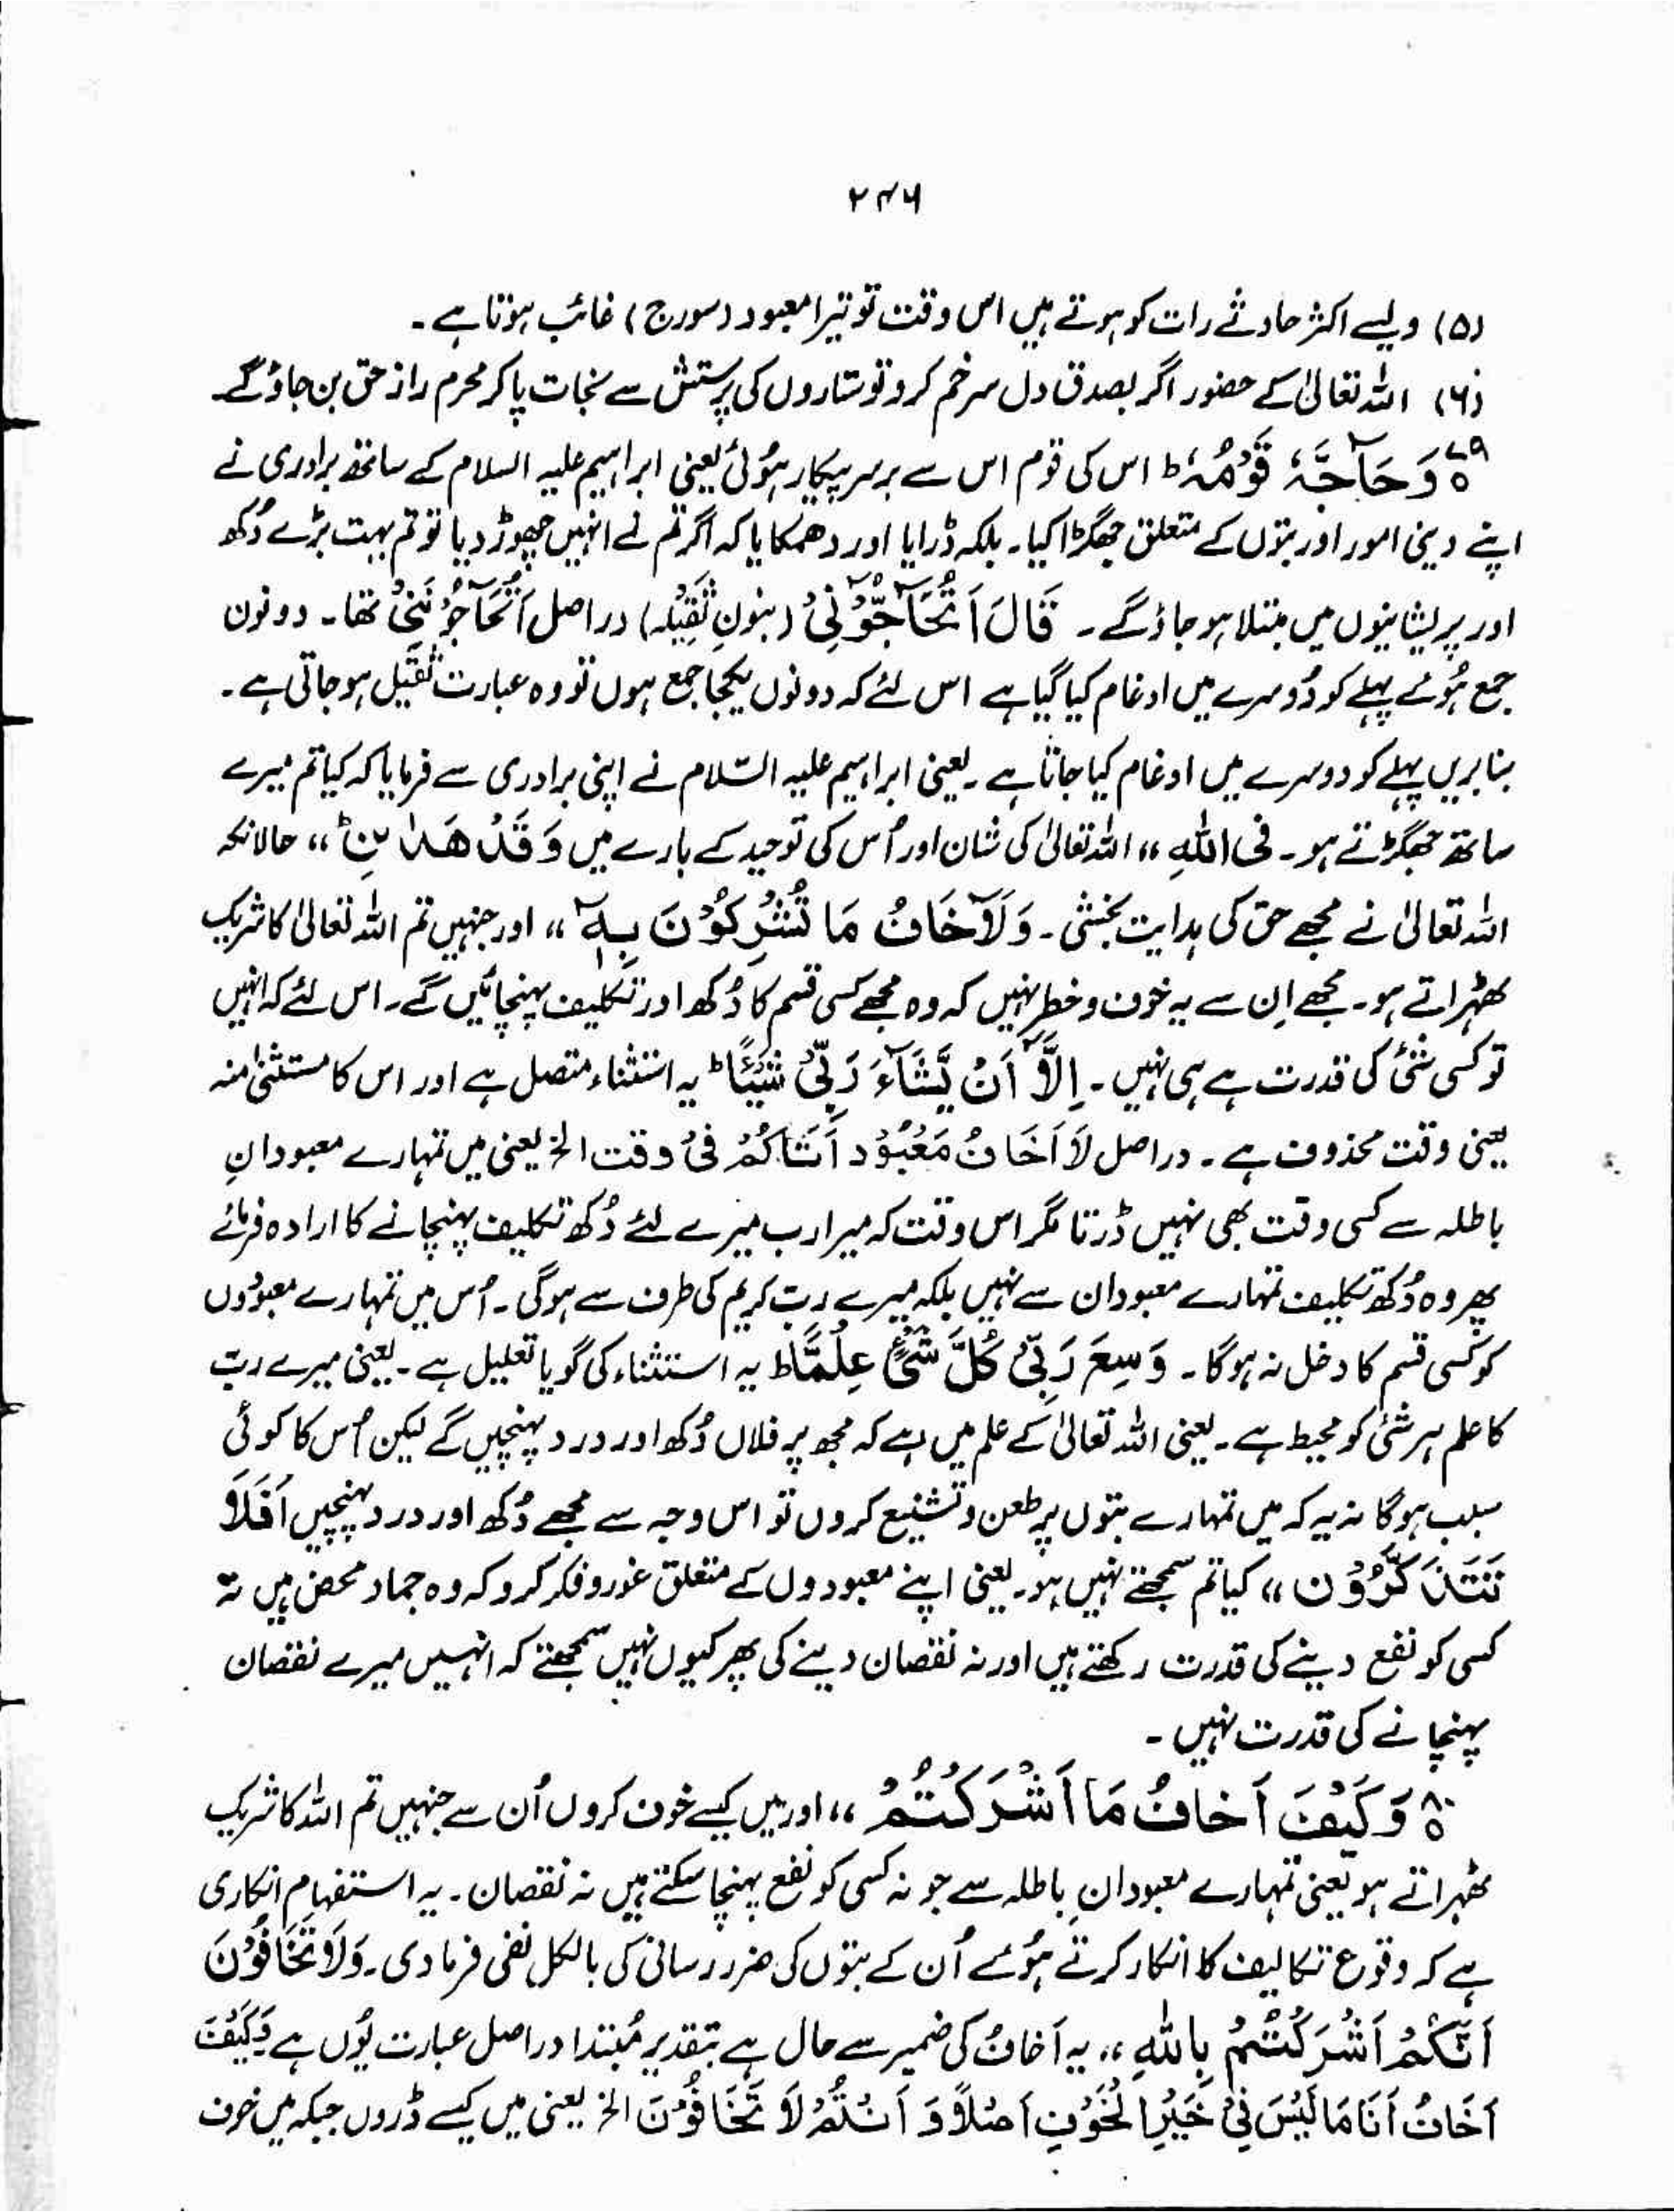 ۲۴۶
(۵) ویسے اکثر حادثے رات کو ہوتے ہیں اس وقت تو تیرا معبود (سورج) غائب ہوتا ہے ۔
(۶) اللہ تعالیٰ کے حضور اگر بصدق دل سرخم کرو تو ستاروں کی پرستش سے نجات پا کر محرم راز حق بن جاؤ گے۔
۷۹ وَحَآجَّہٗ قَوْمُہٗ ط اس کی قوم اس سے برسر پیکار ہوئی یعنی ابراہیم علیہ السلام کے ساتھ برادری نے
اپنے دینی امور اور بتوں کے متعلق جھگڑا کیا۔ بلکہ ڈرایا اور دھمکایا کہ اگر تم نے انہیں چھوڑ دیا تو تم بہت بڑے دُکھ
اور پریشانیوں میں مبتلا ہو جاؤ گے ۔ قَالَ اَتُحَآجُّوْٓنِّیْ (بنونِ ثقیلہ) دراصل اَتُحَآجُّوْنَنِیْ تھا۔ دو نون
جمع ہوئے پہلے کو دُوسرے میں ادغام کیا گیا ہے اس لئے کہ دونوں یکجا جمع ہوں تو وہ عبارت ثقیل ہو جاتی ہے ۔
بنا بریں پہلے کو دوسرے میں ادغام کیا جاتا ہے ۔ یعنی ابراہیم علیہ السّلام نے اپنی برادری سے فرمایا کہ کیا تم میرے
ساتھ جھگڑتے ہو ۔ فی اللّٰہِ ،، اللہ تعالیٰ کی شان اور اُس کی توحید کے بارے میں وَقَدْ ھَدٰىنِ ط ،، حالانکہ
اللہ تعالیٰ نے مجھے حق کی ہدایت بخشی ۔ وَلَآ اَخَافُ مَا تُشْرِکُوْنَ بِہٖٓ ،، اور جنہیں تم اللہ تعالیٰ کا شریک
ٹھہراتے ہو ۔ مجھے اِن سے یہ خوف و خطر نہیں کہ وہ مجھے کسی قسم کا دُکھ اور تکلیف پہنچائیں گے ۔ اس لئے کہ انہیں
تو کسی شئ کی قدرت ہے ہی نہیں ۔ اِلَّآ اَنْ یَّشَآءَ رَبِّیْ شَیْئًا ط یہ استثناء متصل ہے اور اس کا مستثنیٰ منہ
یعنی وقت محذوف ہے ۔ دراصل لَا اَخَافُ مَعْبُوْدَاتَکُمْ فِیْ وقت الخ یعنی میں تمہارے معبودانِ
باطلہ سے کسی وقت بھی نہیں ڈرتا مگر اس وقت کہ میرا رب میرے لئے دُکھ تکلیف پہنچانے کا ارادہ فرمائے
پھر وہ دُکھ تکلیف تمہارے معبودان سے نہیں بلکہ میرے ربّ کریم کی طرف سے ہوگی ۔ اُس میں تمہارے معبودوں
کو کسی قسم کا دخل نہ ہو گا ۔ وَسِعَ رَبِّیْ کُلَّ شَیْءٍ عِلْمًا ط یہ استثناء کی گویا تعلیل ہے ۔ یعنی میرے ربّ
کا علم ہر شئ کو محیط ہے ۔ یعنی اللہ تعالیٰ کے علم میں ہے کہ مجھ پر فلاں دُکھ اور درد پہنچیں گے لیکن اُس کا کوئی
سبب ہو گا نہ یہ کہ میں تمہارے بتوں پر طعن و تشنیع کروں تو اس وجہ سے مجھے دُکھ اور درد پہنچیں اَفَلَا
تَتَذَکَّرُوْن ،، کیا تم سمجھتے نہیں ہو ۔ یعنی اپنے معبودوں کے متعلق غور و فکر کرو کہ وہ جماد محض ہیں نہ
کسی کو نفع دینے کی قدرت رکھتے ہیں اور نہ نقصان دینے کی پھر کیوں نہیں سمجھتے کہ انہیں میرے نقصان
پہنچانے کی قدرت نہیں ۔
۸۰ وَکَیْفَ اَخَافُ مَا اَشْرَکْتُمْ ،، اور میں کیسے خوف کروں اُن سے جنہیں تم اللہ کا شریک
ٹھہراتے ہو یعنی تمہارے معبودانِ باطلہ سے جو نہ کسی کو نفع پہنچا سکتے ہیں نہ نقصان ۔ یہ استفہام انکاری
ہے کہ وقوع تکالیف کا انکار کرتے ہوئے اُن کے بتوں کی ضرر رسانی کی بالکل نفی فرما دی ۔ وَلَا تَخَافُوْنَ
اَنَّکُمْ اَشْرَکْتُمْ بِاللّٰہِ ،، یہ اَخَافُ کی ضمیر سے حال ہے بتقدیر مُبتدا دراصل عبارت یُوں ہے وَکَیْفَ
اَخَافُ اَنَا مَا لَیْسَ فِیْ خَیِّرِ الْخَوْفِ اَصْلًا وَ اَنْتُمْ لَا تَخَافُوْنَ الخ یعنی میں کیسے ڈروں جبکہ میں خوف